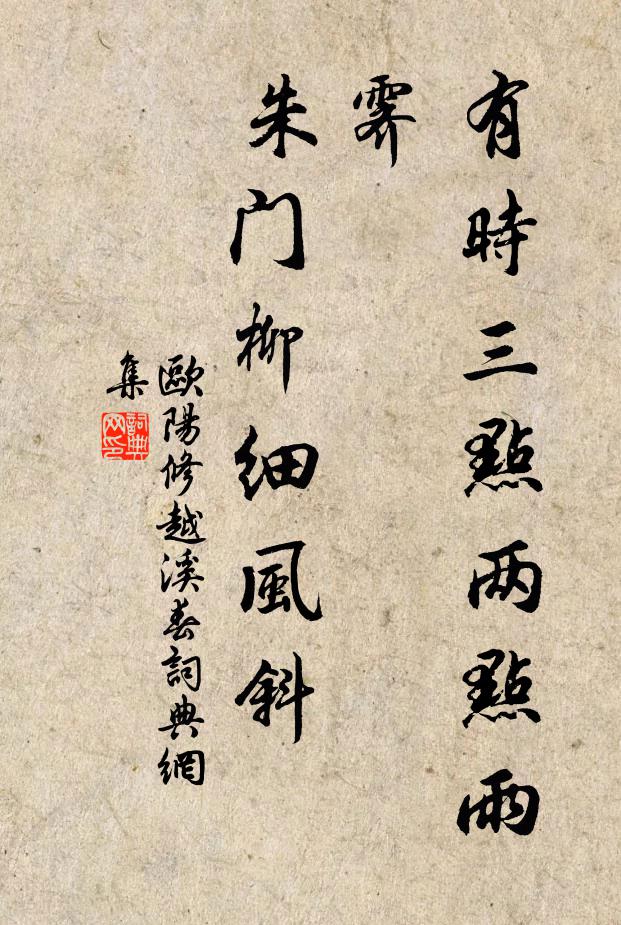 有時三點两點雨
霽
朱门柳细風斜
歐陽修越溪春詞典網
集
詞典
网印